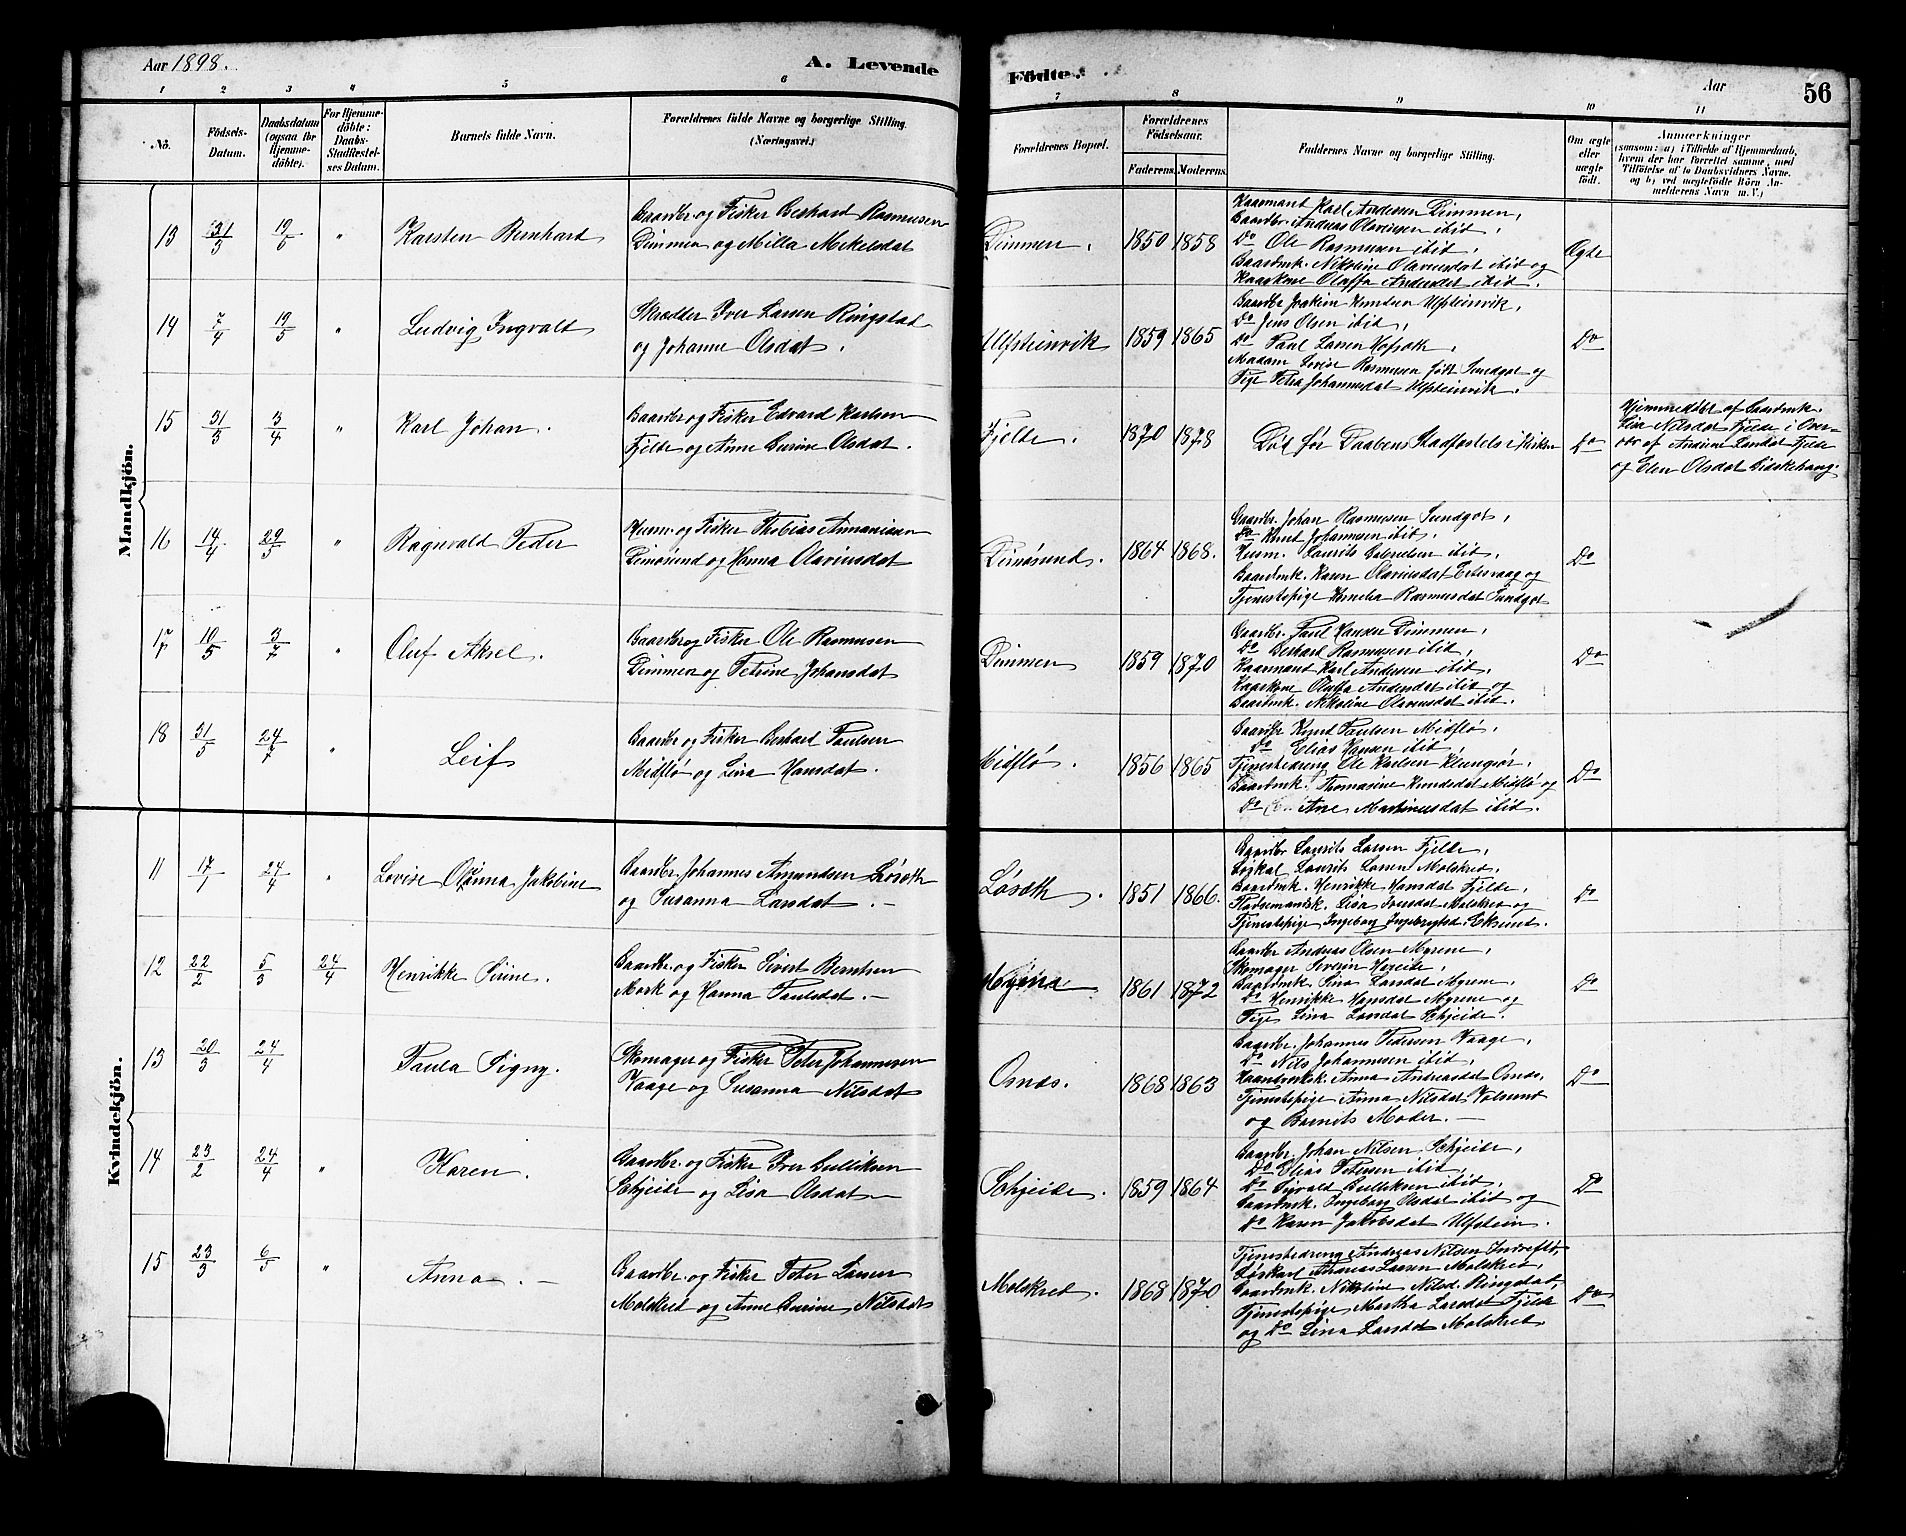 Aar 1898.
A. Levende
Födte.
Aar
56
1 2 3 4 5 6
7 8 9 10 11
No.
Födsels-
Datum.
Daabsdatum
(ogsaa for
Hjemme-
döbte).
For Hjemme-
döbte:
Daabs-
Stadfæstel-
ses Datum.
Barnets fulde Navn.
Forældrenes fulde Navne og borgerlige Stilling.
(Næringsvei.)
Forældrenes Bopæl.
Forældrenes
Födselsaar.
Faderens. Moderens.
Faddernes Navne og borgerlige Stilling.
Om ægte
eller
uægte
födt.
Anmærkninger
(saasom: a) i Tilfælde af Hjemmedaab,
hvem der har forrettet samme, med
Tilföielse af to Daabsvidners Navne,
og b) ved uægtefödte Börn An-
melderens Navn m. V.)
Mandkjön.
13 31/3 19/5 " Karsten Bernhard
Gaardbr. og Fisker Berhard Rasmusen
Dimmen og Milla Mikelsdat
Dimmen. 1850 1858
Kaarmand Karl Andersen Dimmen,
Gaardbr. Andreas Olavinsen ibid,
Do Ole Rasmusen ibid,
Gaardmk. Nikoline Olavinsdat ibid og
Kaarkone Oluffa Andersdat ibid.
Ægte
14 7/4 19/5 " Ludvig Ingvald
Skrædder Iver Larsen Ringstad
og Johanne Olsdat.
Ulfsteinvik 1859 1865
Gaardbr Joakim Knudsen Ulfsteinvik,
Do Jens Olsen ibid,
Do Paul Larsen Hofseth,
Madam Lovise Rasmusen født Sundgot og
Pige Petra Johannesdat Ulfsteinvik.
Do
15 31/3 3/4 " Karl Johan.
Gaardbr og Fisker Edvard Karlsen
Fjelde og Anne Gurine Olsdat.
Fjelde. 1870 1878
Død før Daabens Stadfæstels i Kirken
Do
Hjemmedøbt af Gaardmk.
Lisa Nilsdat Fjelde i Over-
vær af Andrine Larsdat Fjelde
og Elen Olsdat Giskehaug.
16 14/4 29/5 " Ragnvald Peder
Husm. og Fisker Thobias Amaniasen
Dimøsund og Hanna Olavinsdat
Dimøsund. 1864 1868.
Gaardbr. Johan Rasmusen Sundgot,
Do Knut Johannesen ibid,
Husm. Laurits Gabrielsen ibid,
Gaardmk. Karen Olavinsdat Ertesvaag og
Tjenestepige Kornelia Rasmusdat Sundgot
Do
17 10/5 3/7 " Oluf Aksel.
Gaardbr og Fisker Ole Rasmusen
Dimmen og Petrine Johansdat
Dimmen 1859 1870
Gaardbr. Paul Hansen Dimmen,
Do Berhard Rasmusen ibid,
Kaarmand Karl Andersen ibid,
Kaarkone Oluffa Andersdat ibid og
Gaardmk. Nikoline Olavinsdat ibid.
Do
18 31/5 24/7 " Leif
Gaardbr og Fisker Berhard Paulsen
Midflø og Lina Hansdat.
Midflø. 1856 1865
Gaardbr Knud Paulsen Midflø,
Do Elias Hansen ibid,
Tjenestedreng Ole Karlsen Klungsør,
Gaardmk. Thomasine Knudsdat Midflø og
Do Ane Martinusdat ibid.
Do
Kvindekjön.
11 17/1 24/4 " Lovise Olianna Jakobine
Gaardbr. Johannes Amundsen Løseth
og Susanna Larsdat.—
Løseth. 1851 1866.
Gaardbr Laurits Larsen Fjelde,
Løskal Laurits Larsen Molskred,
Gaardmk. Henrikke Hansdat Fjelde,
Pladsemandsk. Lisa Iversdat Molskred og
Tjenestepige Ingeborg Ingebrigtsd. Eksund.
Do
12 22/2 5/3 24/4 Henrikke Sirine.
Gaardbr. og Fisker Sivert Berntsen
Mork og Hanna Paulsdat.—
Myrene 1861 1872
Gaardbr Andreas Olsen Myrene,
Skomager Severin Hareide,
Gaardmk. Lina Larsdat Myrene,
Do Henrikke Hansdat Myrene og
Pige Lina Larsdat Schjeide.
Do
13 20/3 24/4 Paula Signy.
Skomager og Fisker Peter Johannesen
Vaage og Susanna Nilsdat
Osnes. 1868 1863
Gaardbr. Johannes Pedersen Vaage,
Do Nils Johannesen ibid,
Haandverksk. Anna Andreasdat Osnes,
Tjenestepige Anna Nilsdat Volsund
og Barnets Moder.—
Do
14 23/2 24/4 " Karen.
Gaardbr. og Fisker Iver Gulliksen
Schjeide og Lisa Olsdat—
Schjeide. 1859 1864
Gaardbr. Johan Nilsen Schjeide,
Do Elias Petersen ibid,
Do Sivald Gulliksen ibid,
Gaardmk. Ingeborg Olsdat ibid og
Do Karen Jakobsdat Ulfstein.
Do
15 23/3 6/5 " Anna.—
Gaardbr. og Fisker Peter Larsen
Molskred og Anne Gurine Nilsdat
Molskred. 1868 1870
Tjenestedreng Andreas Nilsen Indreflø,
Løskarl Andreas Larsen Molskred,
Gaardmk. Nikoline Nilsd. Ringstad,
Tjenestepige Martha Larsdat Fjelde
og Do Lina Larsdat Molskred.
Do